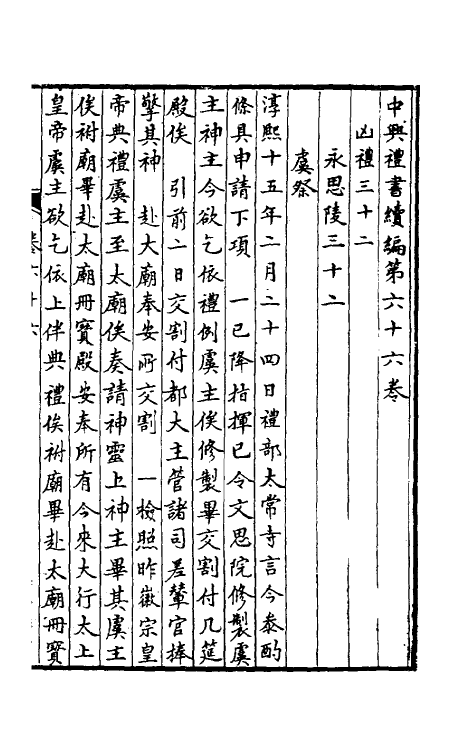 中興禮書續編第六十六卷
凶禮三十二
永思陵三十二
虞祭
淳熙十五年二月二十四日禮部太常寺言今叅酌
條具申請下項　一已降指揮已令文思院修製虞
主神主今欲乞依禮例虞主俟修製畢交割付几筵
殿俟　引前二日交割付都大主管諸司差輦官捧
擎其神　赴大廟奉安所交割　一檢照昨徽宗皇
帝典禮虞主至太廟俟奏請神靈上神主畢其虞主
俟祔廟畢赴太廟冊寶殿安奉所有今來大行太上
皇帝虞主欲乞依上件典禮俟祔廟畢赴太廟冊寶
卷六十六